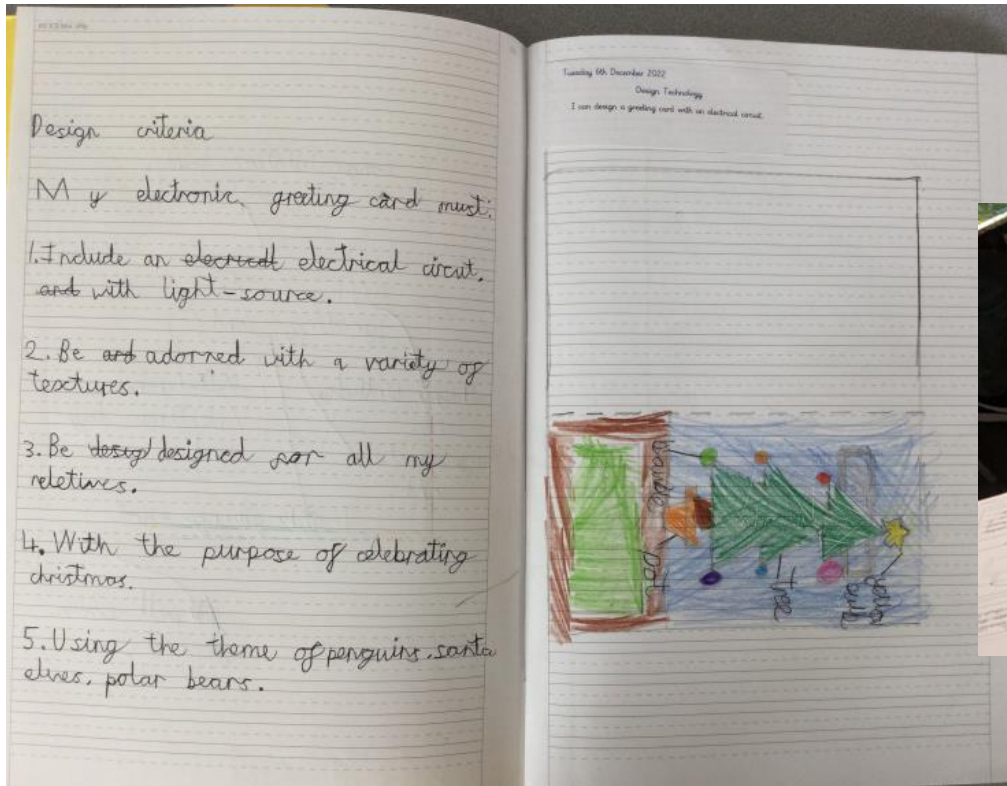 Design criteria
My electronic greeting card must:
1. Include an electrical circut.
with light-source.
2. Be adorned with a variety of
textures.
3. Be designed for all my
reletives.
4. With the purpose of celebrating
christmas.
5. Using the theme of penguins, santa
elves, polar bears.
Tuesday 6th December 2022
Design Technology
I can design a greeting card with an electrical circuit.
bauble
pot
tree
yellow
bulb